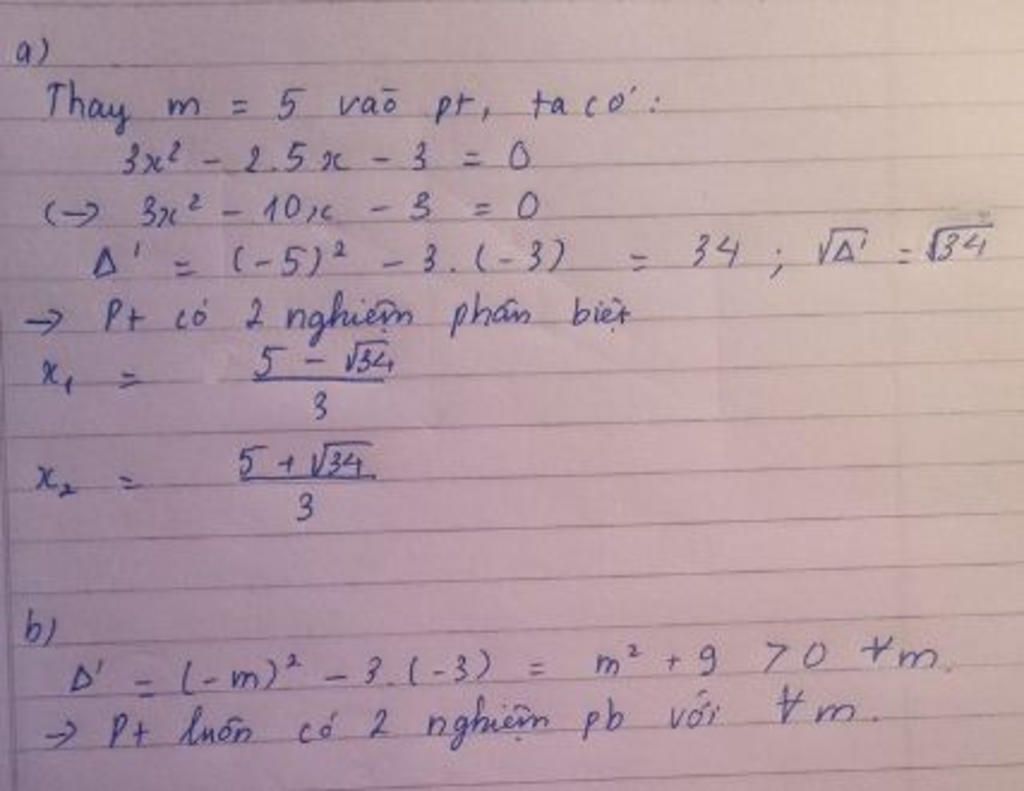 a)
Thay m = 5 vào pt, ta có:
3x² - 2.5x - 3 = 0
(-> 3x² - 10x - 3 = 0
Δ' = (-5)² - 3.(-3) = 34 ; √Δ' = √34
-> Pt có 2 nghiệm phân biệt
x₁ = (5 - √34)/3
x₂ = (5 + √34)/3
b)
Δ' = (-m)² - 3.(-3) = m² + 9 > 0 ∀m.
-> Pt luôn có 2 nghiệm pb với ∀m.